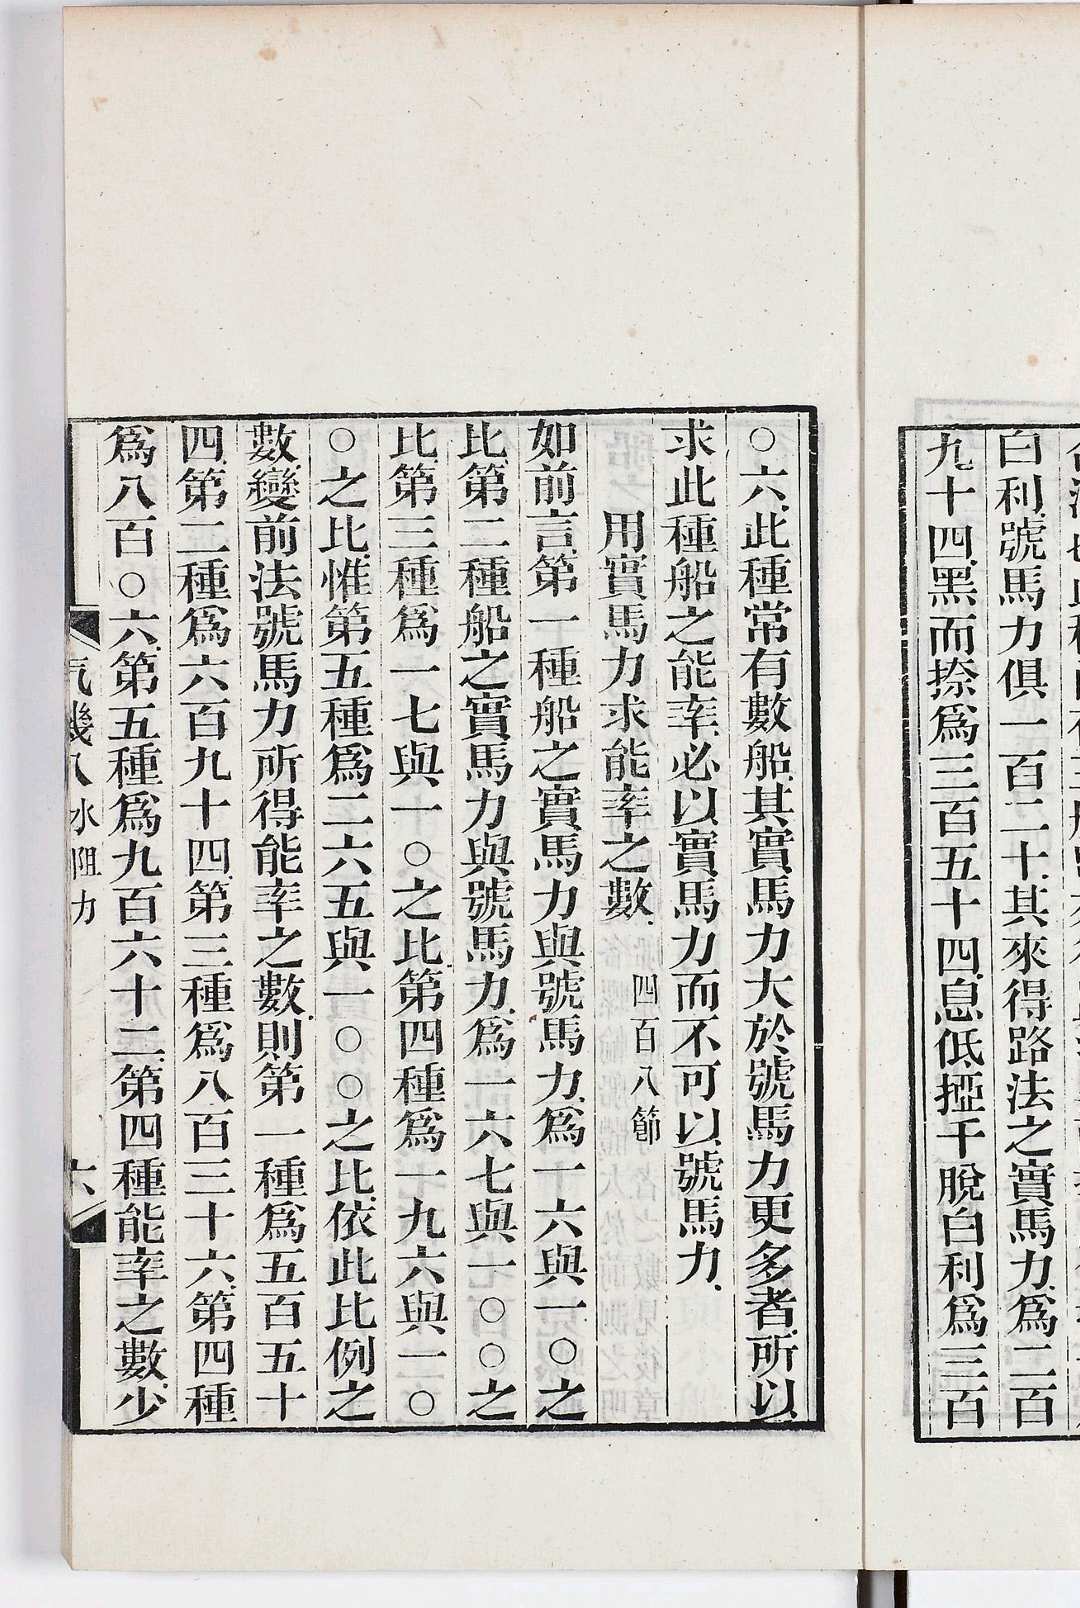 白利號馬力俱一百二十其來得路法之實馬力爲二百
九十四黑而捺爲三百五十四息低挜千脫白利爲三百
○六此種常有數船其實馬力大於號馬力更多者所以
求此種船之能率必以實馬力而不可以號馬力
用實馬力求能率之數 四百八節
如前言第一種船之實馬力與號馬力爲一六與一○之
比第二種船之實馬力與號馬力爲一六七與一○○之
比第三種爲一七與一○之比第四種爲一九六與一○
○之比惟第五種爲二六五與一○○之比依此比例之
數變前法號馬力所得能率之數則第一種爲五百五十
四第二種爲六百九十四第三種爲八百三十六第四種
爲八百○六第五種爲九百六十二第四種能率之數少
汽機八 水阻力 六